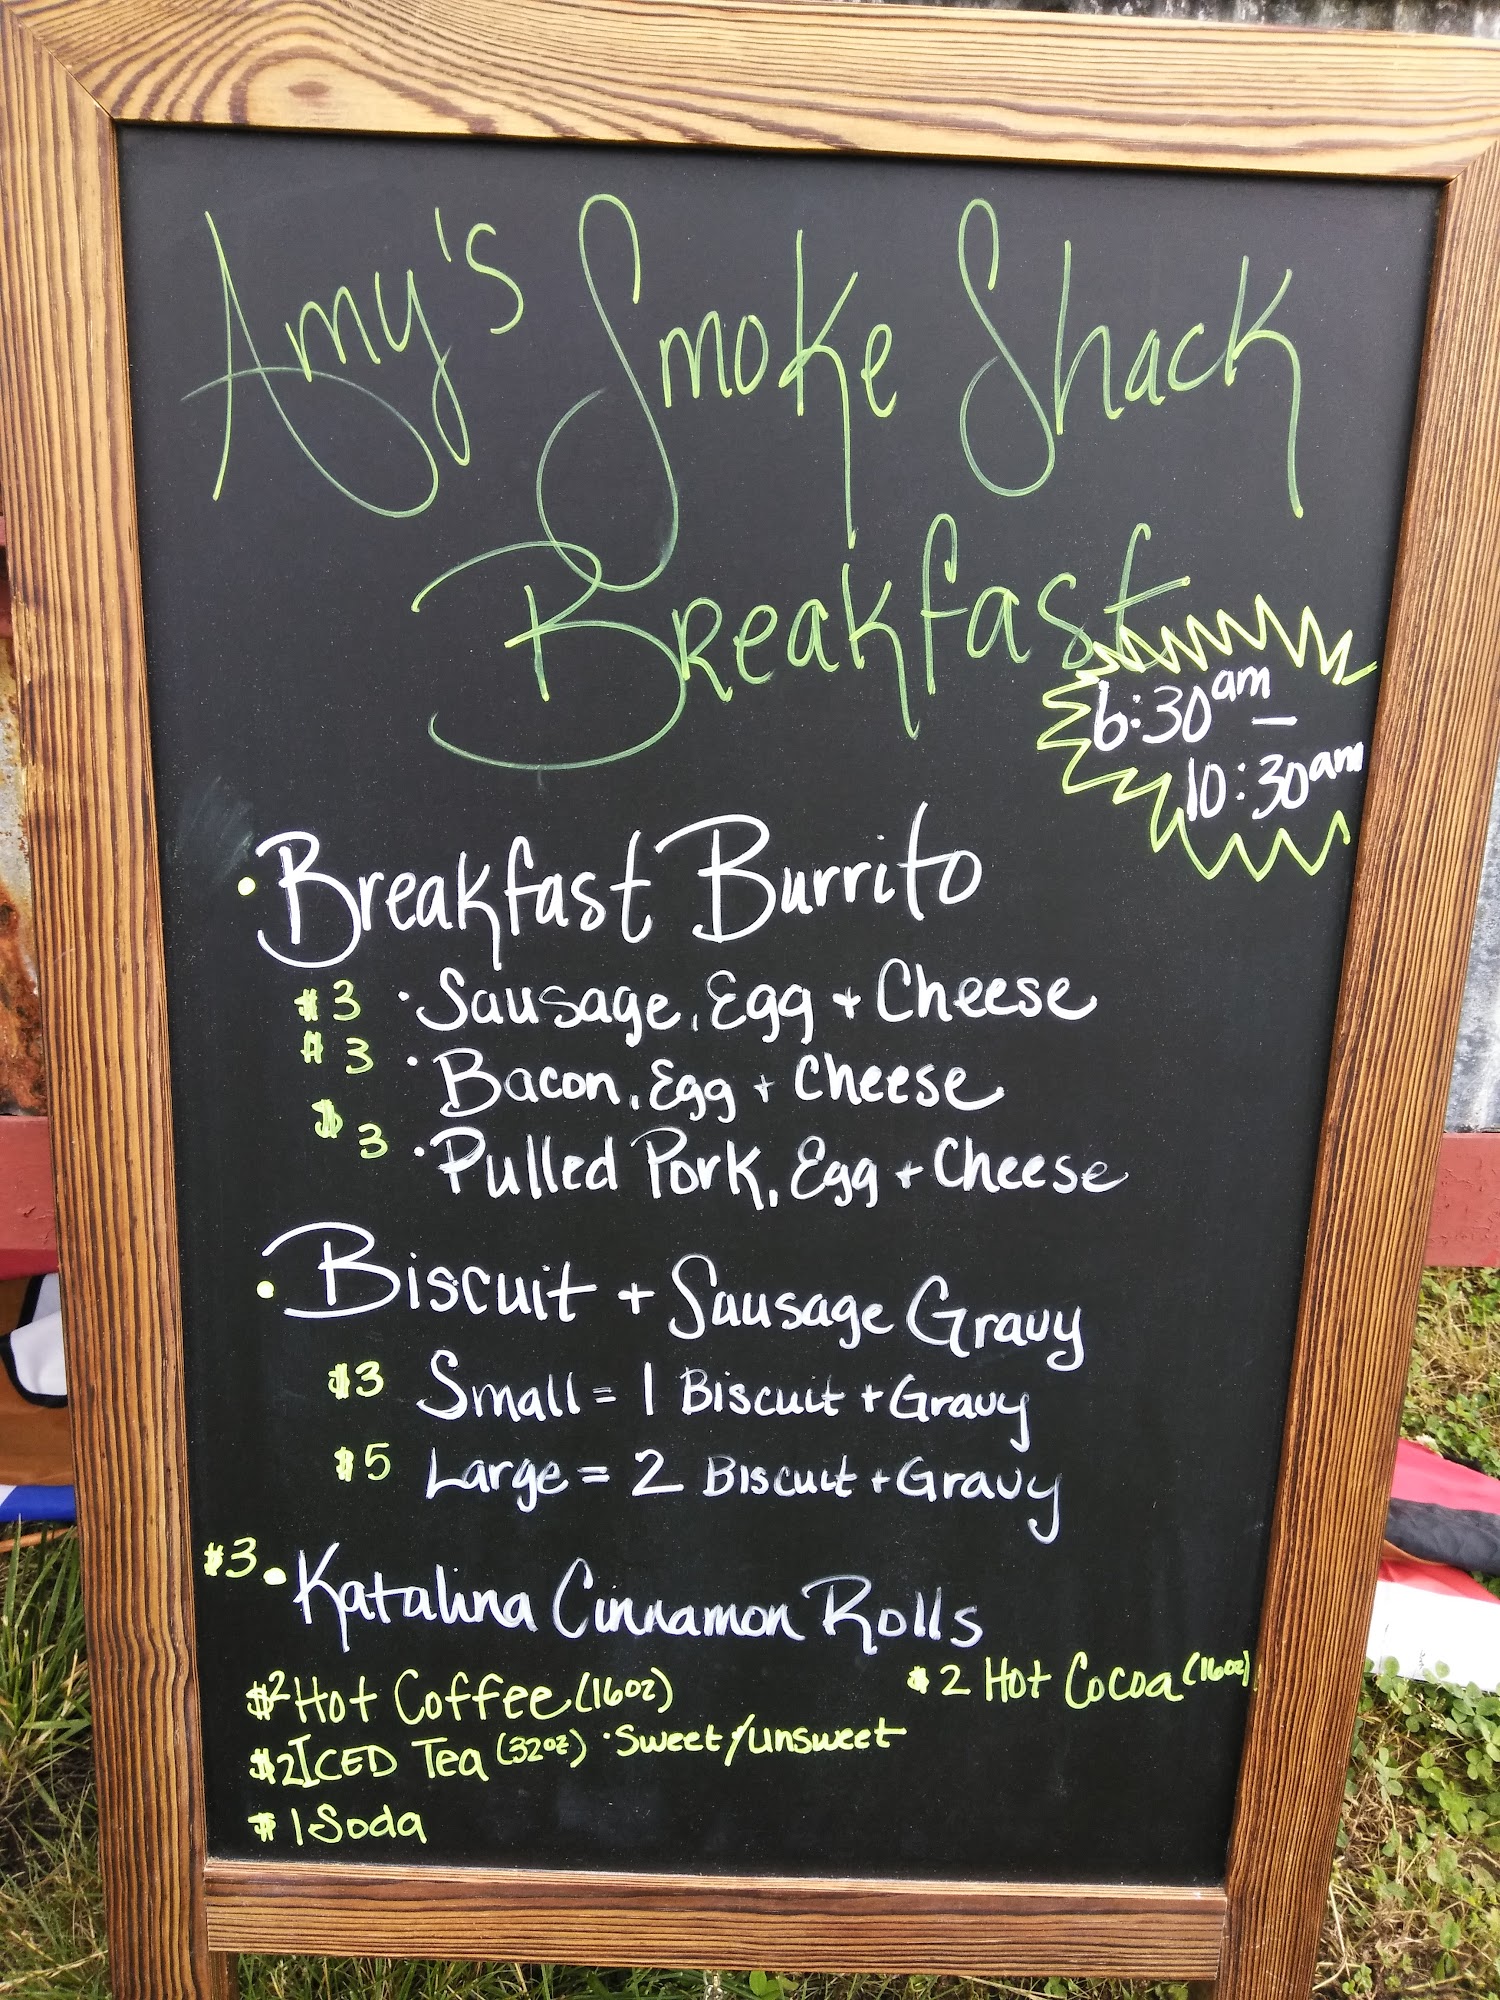 Amy's Smoke Shack
Breakfast
6:30am –
10:30am
• Breakfast Burrito
$3 • Sausage, Egg + Cheese
$3 • Bacon, Egg + Cheese
$3 • Pulled Pork, Egg + Cheese
• Biscuit + Sausage Gravy
$3 Small = 1 Biscuit + Gravy
$5 Large = 2 Biscuit + Gravy
$3 • Katalina Cinnamon Rolls
$2 Hot Coffee (16oz) $2 Hot Cocoa (16oz)
$2 ICED Tea (32oz) • Sweet/Unsweet
$1 Soda